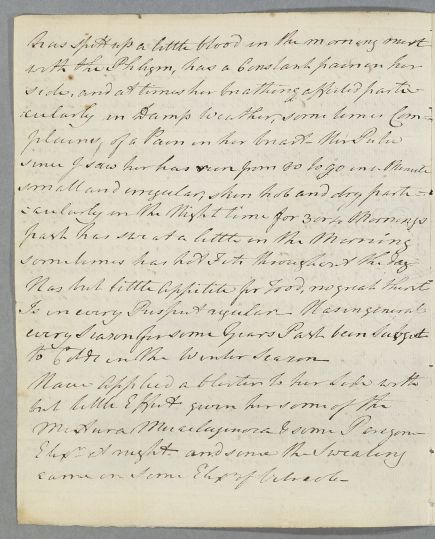 has spitt up a little blood in the morning mixt
with the Phlegm, has a Constant pain in her
side, and at times her breathing affected parti-
cularly in Damp Weather, some times Com-
plains, of a Pain in her breast Her Pulse
since I saw her has run from 80 to 90 in a Minute
small and irregular, skin hot and dry parti-
-cularly in the Night time for 3 or 4 Mornings
past has sweat a little in the Morning
sometimes has hot Fits throughout the day
Has but little Appetite for Food, no great thirst
Is in every Respect regular Has in general
every Season for some Years Past been subject
to Colds in the Winter Season
Have applied a blister to her Side with
but little Effect given her some of the
Mixtura Mucilaginosa & some Paregoric
Elixr at night and since the Sweating
came on some Elixr of Vitriol